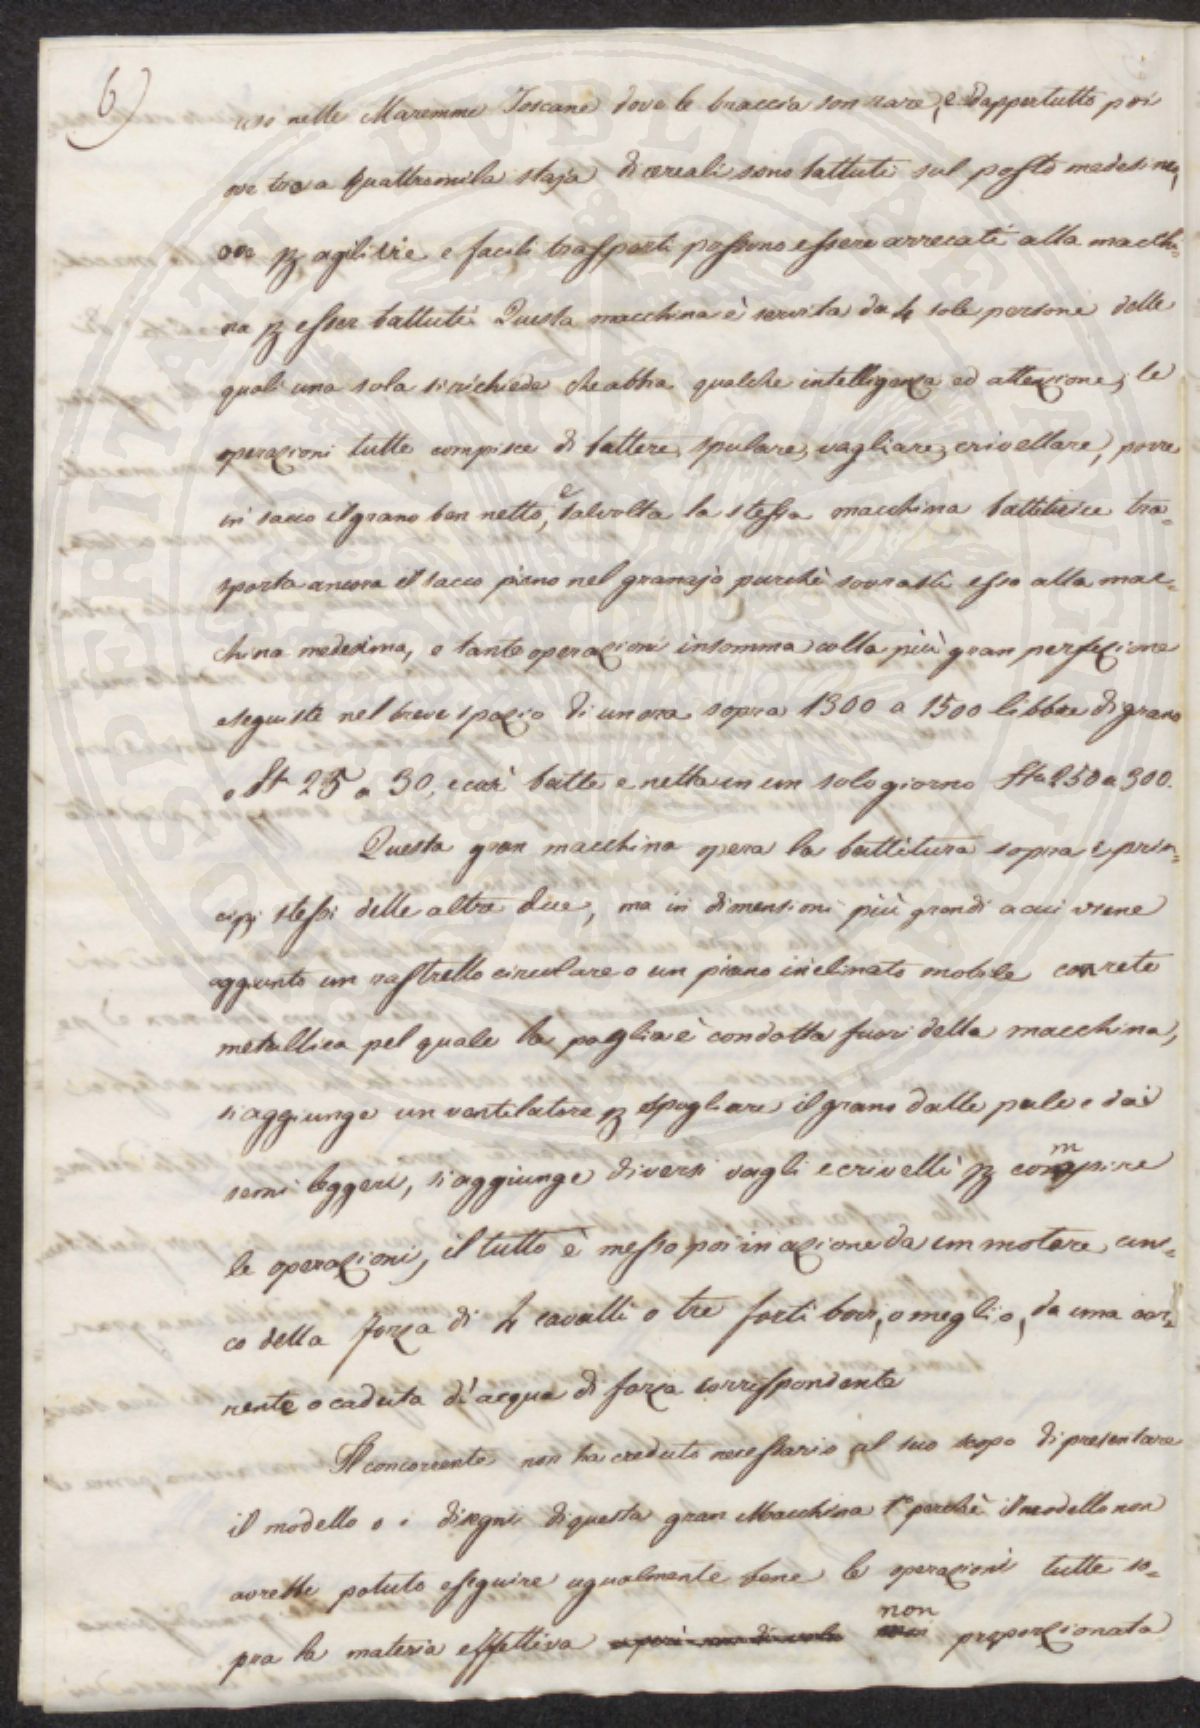 6)
uso nelle Maremme Toscane dove le braccia son rare, e dappertutto poi
ove tre a quattromila staja di cereali sono battuti sul posto medesimo,
ove p agili vie e facili trasporti possono essere arrecati alla macchi-
na p esser battuti. Questa macchina è servita da 4 sole persone delle
quali una sola si richiede che abbia qualche intelligenza ed attenzione; le
operazioni tutte compisce di battere, spulare, vagliare, crivellare, porre
in sacco il grano ben netto, e talvolta la stessa macchina battitrice tra-
sporta ancora il sacco pieno nel granajo purchè sovrasti esso alla mac-
china medesima, e tante operazioni insomma colla più gran perfezione
eseguiste nel breve spazio di un ora sopra 1300 a 1500 libbre di grano
o Sta 25 a 30, e così batte e netta in un solo giorno Sta 250 a 300.
Questa gran macchina opera la battitura sopra i prin-
cipj stessi delle altre due, ma in dimensioni più grandi a cui viene
aggiunto un rastrello circolare o un piano inclinato mobile con rete
metallica pel quale la paglia è condotta fuori della macchina,
si aggiunge un ventilatore p spogliare il grano dalle pule e dai
semi leggeri, si aggiunge diversi vagli e crivelli p compire
le operazioni, il tutto è messo poi in azione da un motore uni-
co della forza di 4 cavalli o tre forti bovi, o meglio, da una cor-
rente o caduta d'acqua di forza corrispondente
Il concorrente non ha creduto necessario al suo scopo di presentare
il modello o i disegni di questa gran Macchina 1° perchè il modello non
avrebbe potuto eseguire ugualmente bene le operazioni tutte so-
pra la materia effettiva non proporzionata